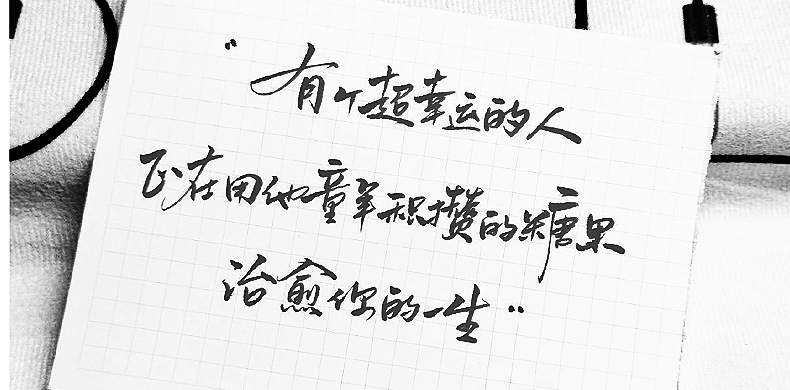 “有个超幸运的人
正在用他童年积攒的糖果
治愈你的一生”